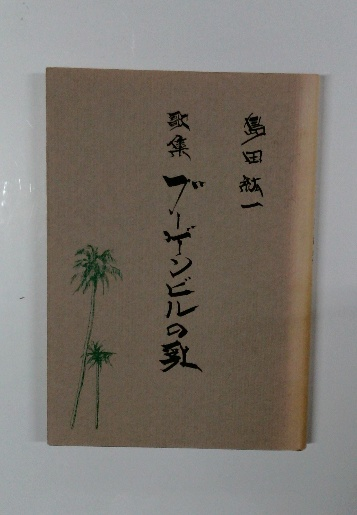 島田紘一
歌集
ブーゲンビルの乳